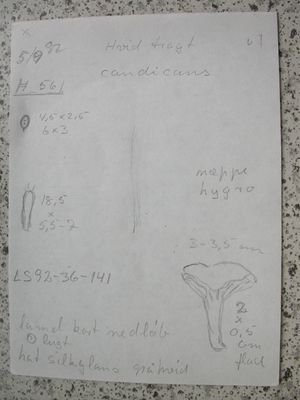 x
5/9 92
Hvid tragt
candicans
H 561
4,5 x 2,5
6 x 3
næppe
hygro
18,5
x
5,5-7
2-3,5 cm
LS92-36-141
2
x
0,5
cm
flad
lamel kort nedløb
lugt
hat silkeglans gråhvid